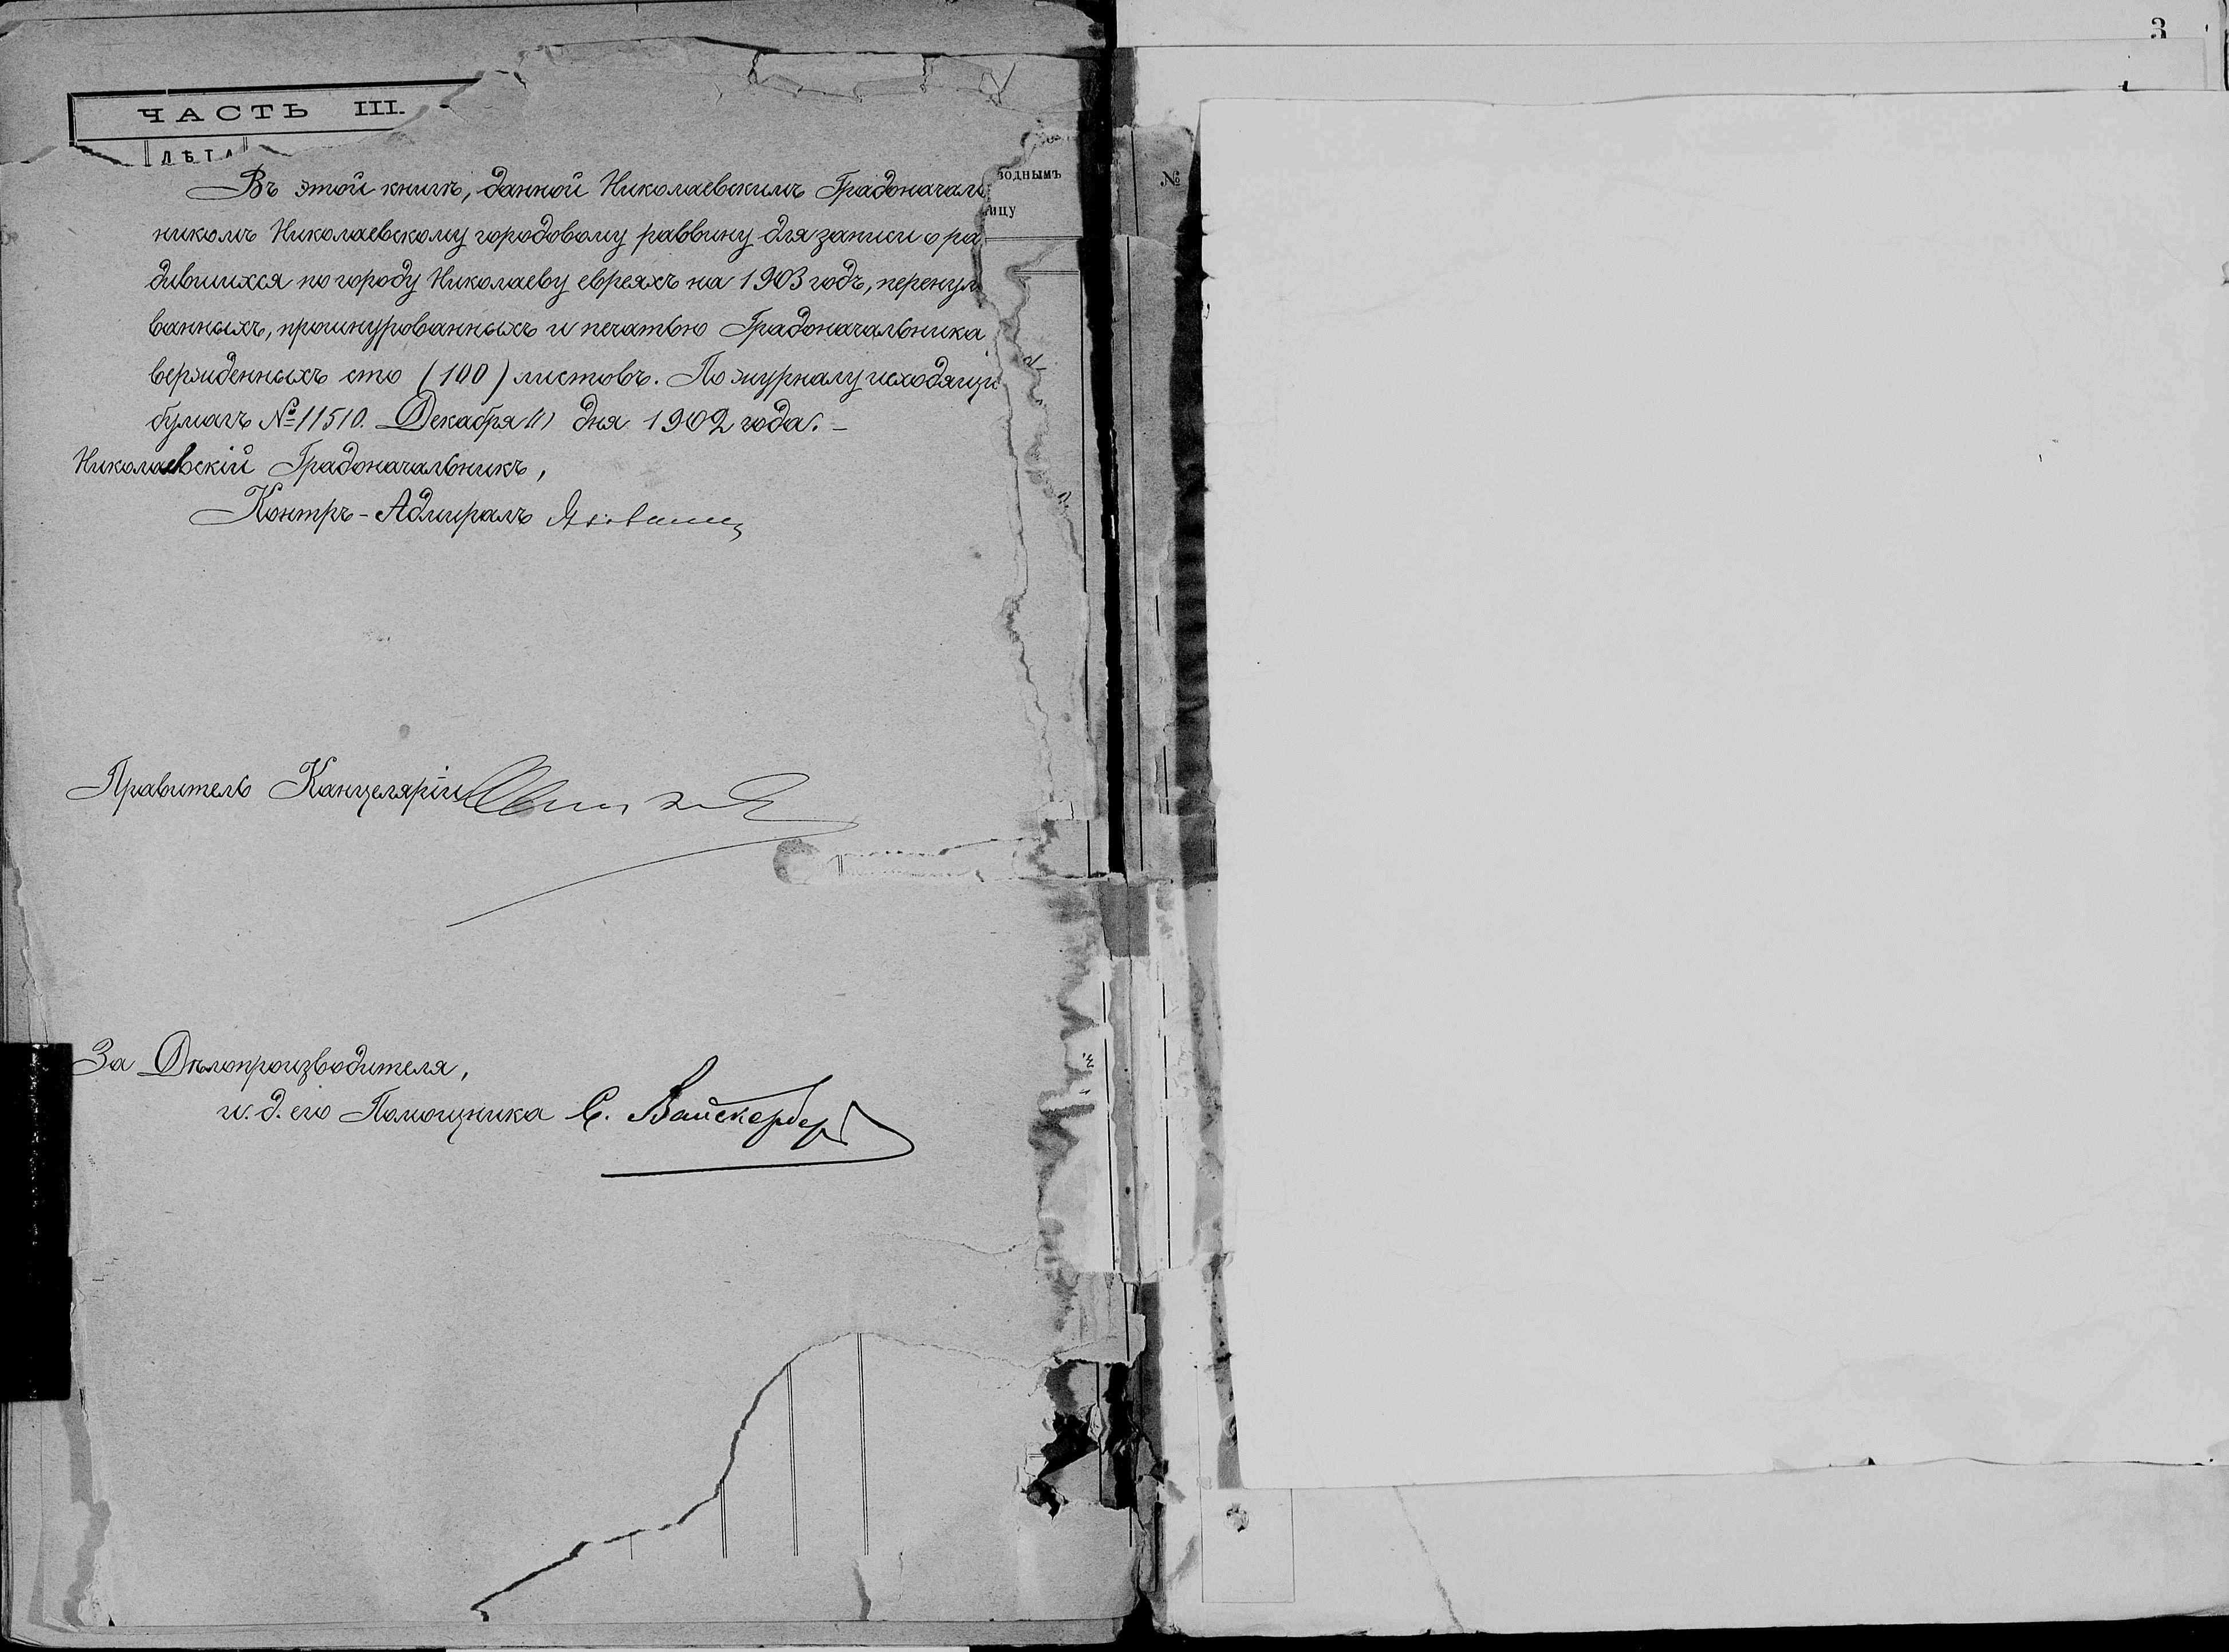 3
ЧАСТЬ III.
ЛѢТА
Въ этой книгѣ, данной Николаевскимъ Градоначаль
никомъ Николаевскому городовому раввину для записи о ро
дившихся по городу Николаеву евреяхъ на 1903 годъ, перенум
ванныхъ, прошнурованныхъ и печатью Градоначальника
вержденныхъ сто (100) листовъ. По журналу исходящи
бумагъ № 11510. Декабря 11 дня 1902 года.
Николаевскій Градоначальникъ,
Контръ-Адмиралъ
Правитель Канцеляріи
За Дѣлопроизводителя,
и. д. его Помощника С.
воднымъ
ицу
№